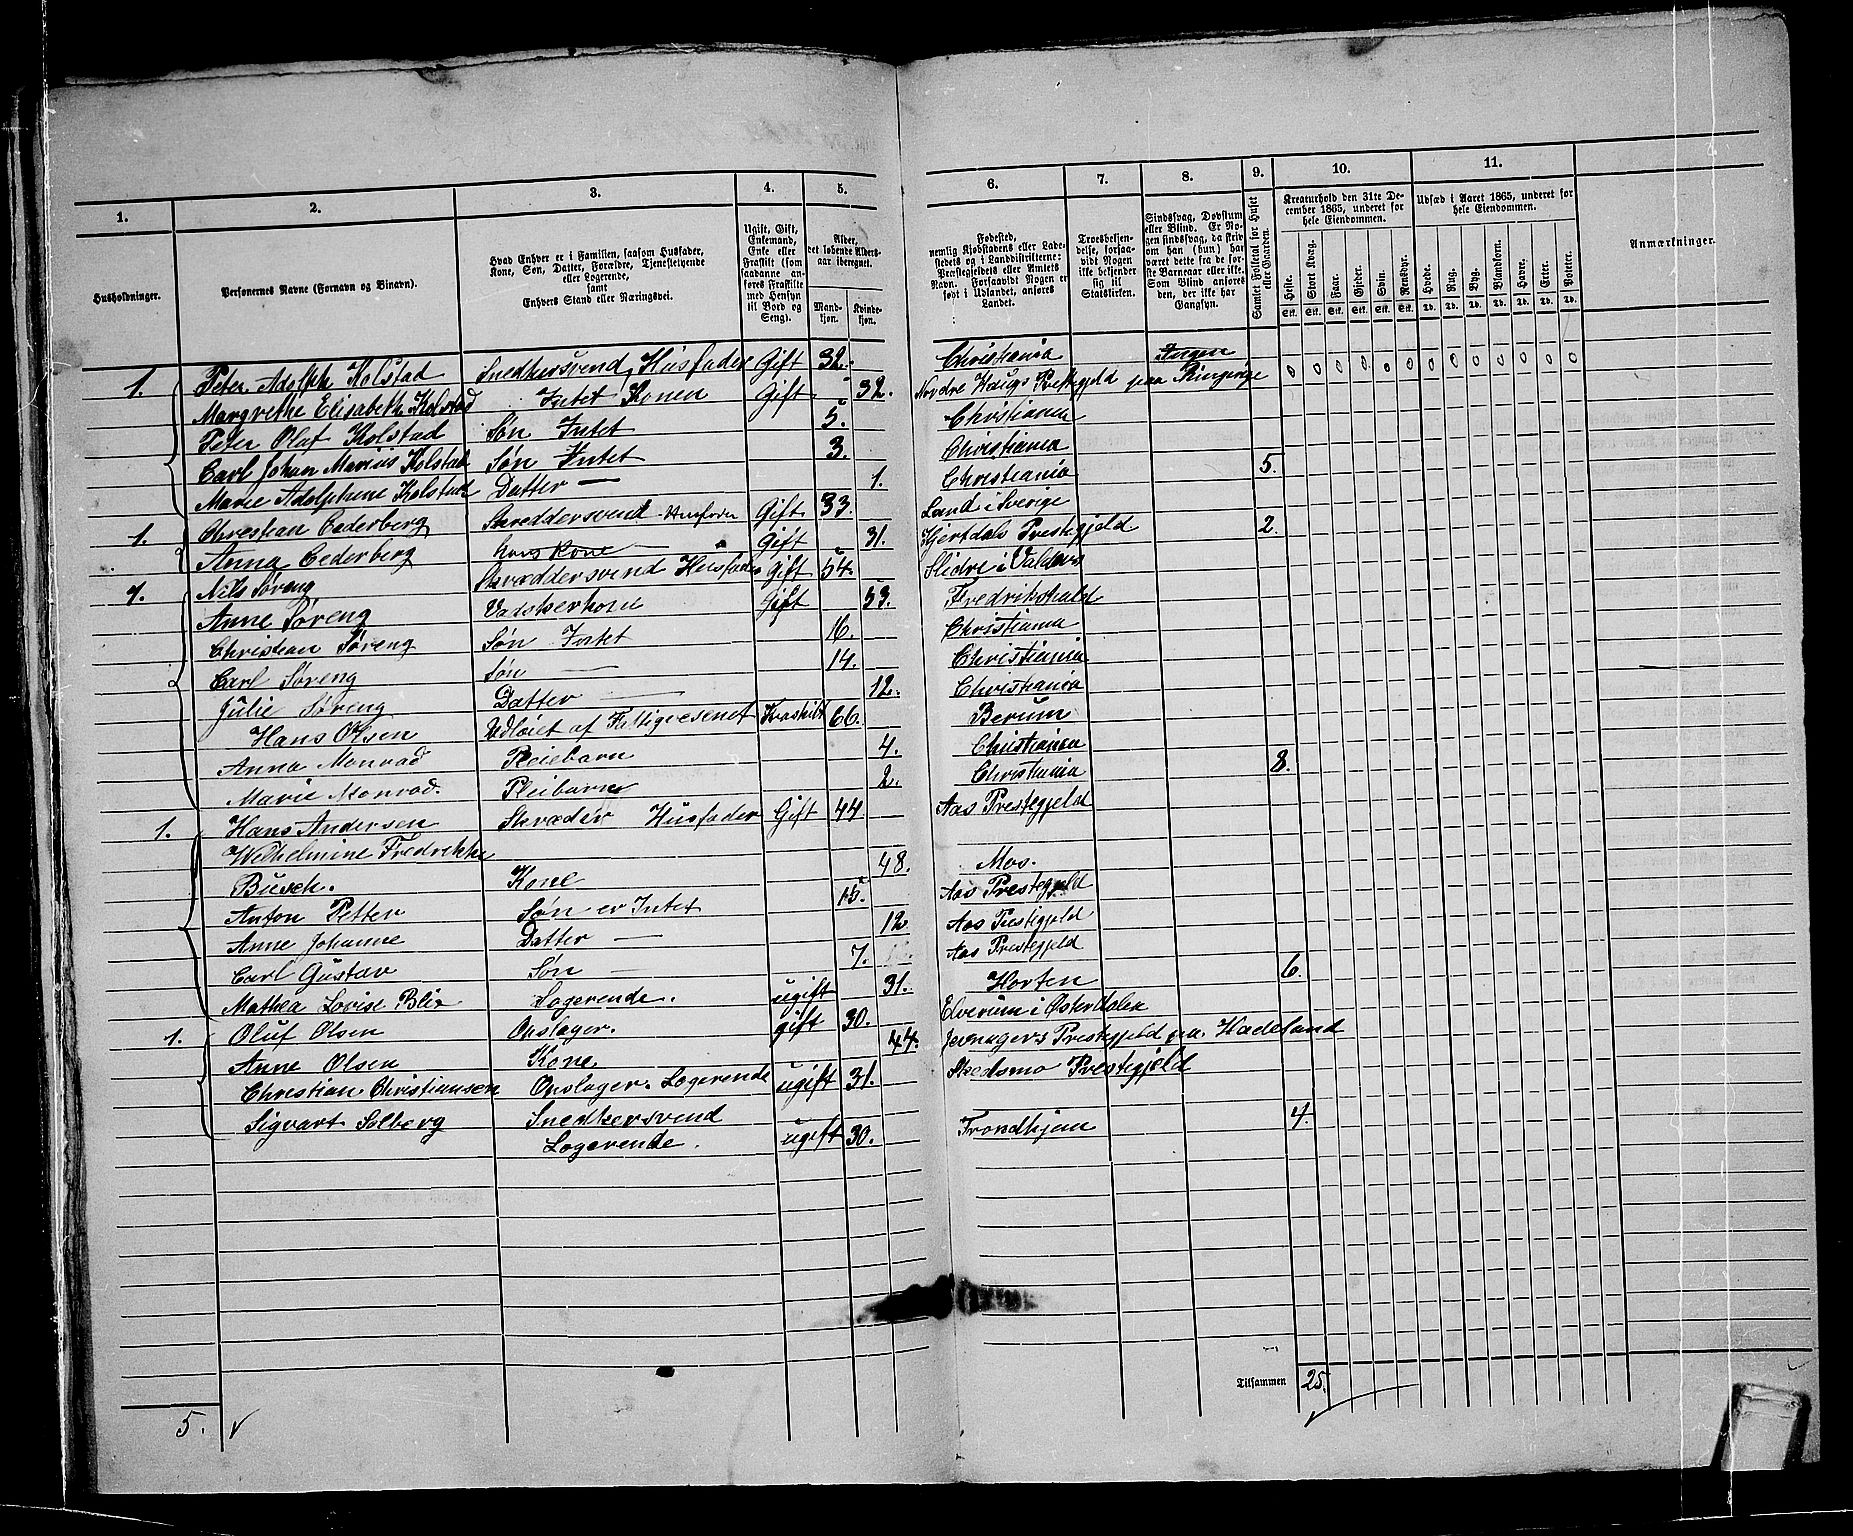 1. 2. 3. 4. 5. 6. 7. 8. 9. 10. 11.
Husholdninger.
Personernes Navne (Fornavn og Binavn).
Hvad Enhver er i Familien, saasom Husfader,
Kone, Søn, Datter, Forældre, Tjenestetyende
eller Logerende,
samt
Enhvers Stand eller Næringsvei.
Ugift, Gift,
Enkemand,
Enke eller
Fraskilt (som
saadanne an-
føres Fraskilte
med Hensyn
til Bord og
Seng).
Alder,
det løbende Alders-
aar iberegnet.
Mand-
kjøn.
Kvinde-
kjøn.
Fødested,
nemlig Kjøbstadens eller Lade-
stedets og i Landdistrikterne:
Præstegjeldets eller Amtets
Navn. Forsaavidt Nogen er
født i Udlandet, anføres
Landet.
Troesbekjen-
delse, forsaa-
vidt Nogen
ikke bekjender
sig til
Statskirken.
Sindssvag, Døvstum
eller Blind. Er No-
gen sindssvag, da skriv
om han (hun) har
været dette fra de før-
ste Barneaar eller ikke.
Som Blind anføres
den, der ikke har
Gangsyn.
Samlet Folketal for Huset
eller Gaarden.
Kreaturhold den 31te De-
cember 1865, underet for
hele Eiendommen.
Heste. Stort Kvæg. Faar. Gjeder. Svin. Rensdyr.
Stk. Stk. Stk. Stk. Stk. Stk.
Udsæd i Aaret 1865, underet for
hele Eiendommen.
Hvede. Rug. Byg. Blandkorn. Havre. Erter. Poteter.
Td. Td. Td. Td. Td. Td. Td.
Anmærkninger.
1. Peter Adolph Kolstad Snedkersvend, Husfader Gift 32. Christiania Ingen 0 0 0 0 0 0 0 0 0 0 0 0 0
Margrethe Elisabeth Kolstad Intet Konen Gift 32. Nordre Præstgjeld paa Ringerige
Peter Olaf Kolstad Søn Intet 5. Christiania
Carl Johan Marius Kolstad Søn Intet 3. Christiania
Marie Adolphine Kolstad Datter — 1. Christiania 5.
1. Christian Cederberg Skreddersvend Husfader Gift 33. Land i Sverige
Anna Cederberg hans Kone — Gift 31. Hjertdals Prestegjeld 2.
1. Nils Søreng Skræddersvend Husfader Gift 54. Slidre i Valders
Anne Søreng Vadskerkone Gift 53. Fredrikshald
Christian Søreng Søn Intet 16. Christiania
Carl Søreng Søn — 14. Christiania
Julie Søreng Datter — 12. Christiania
Hans Olsen Udløiet af Fattigvesenet Fraskilt 66. Berum
Anna Monrad Pleiebarn 4. Christiania
Marie Monrad. Pleibarn 2. Christiania 8.
1. Hans Andersen Skræder Husfader Gift 44 Aas Prestegjeld
Wilhelmine Fredrikke
Busch. Kone 48. Mos.
Anton Petter Søn er Intet 15. Aas Prestegjeld
Anne Johanne Datter — 12 Aas Prestigjeld
Carl Gustav Søn — 7. Aas Prestegjeld
Mathea Lovise Blix Logerende. ugift 31. Horten 6.
1. Oluf Olsen Opslager. gift 30. Elverum i Østerdalen
Anne Olsen Kone 44. Jevnagers Prestegjeld paa Hadeland
Christian Christiansen Opslager. Logerende ugift 31. Skedsmo Prestegjeld
Sigvart Solberg Snedkersvend
Logerende. ugift 30. Trondhjem 4.
Tilsammen 25.
5.